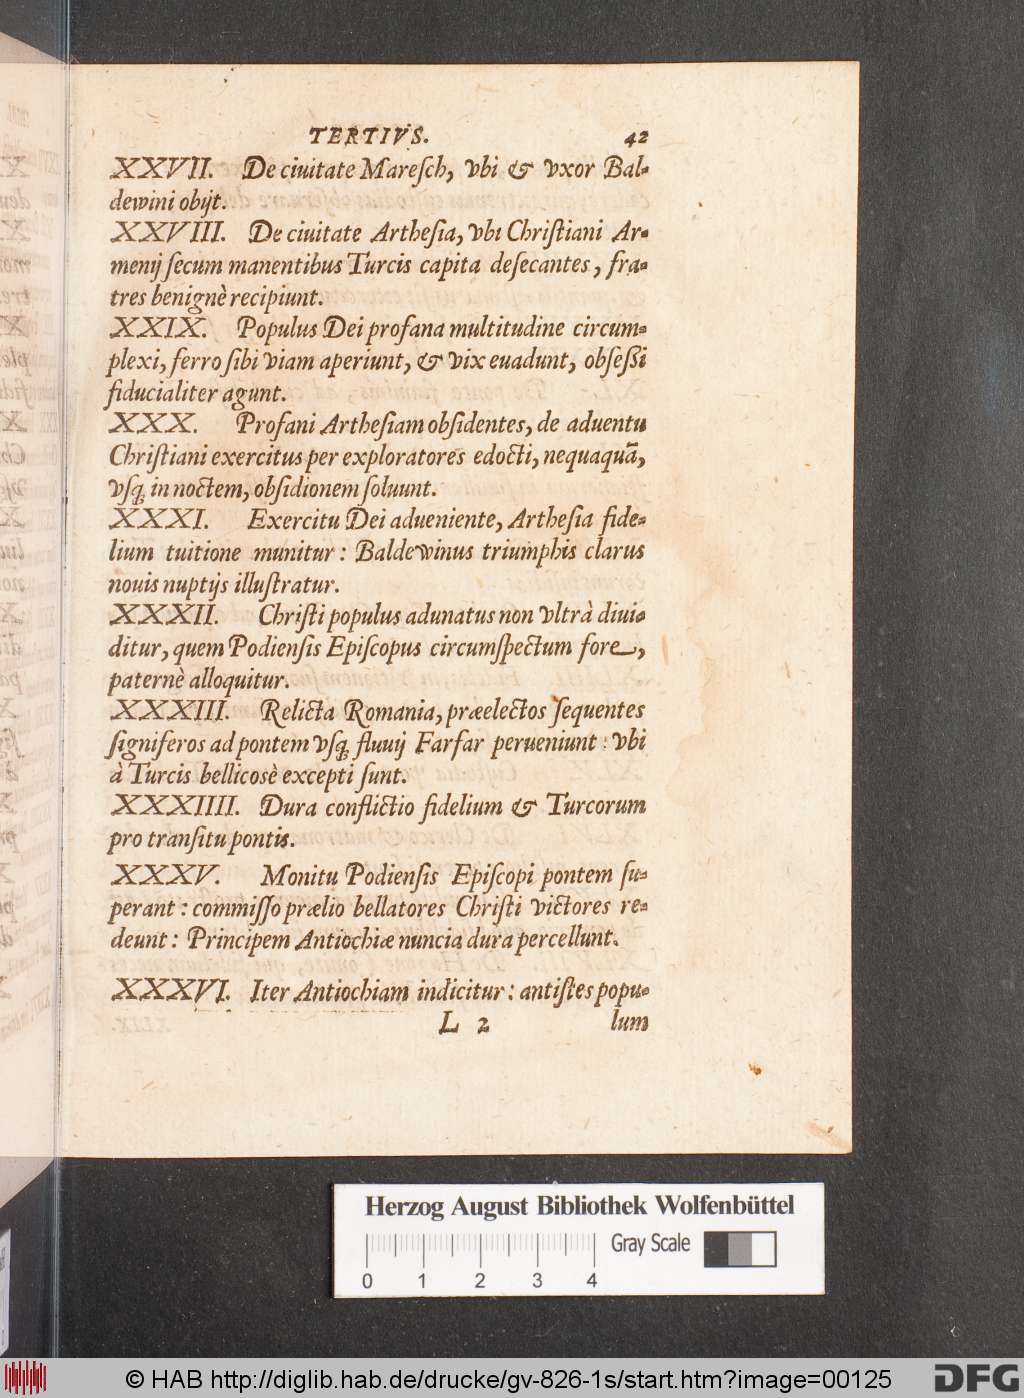 TERTIVS. 42
XXVII. De ciuitate Mareſch, vbi & vxor Bal-
dewini obijt.
XXVIII. De ciuitate Artheſia, vbi Chriſtiani Ar-
menij ſecum manentibus Turcis capita deſecantes, fra-
tres benignè recipiunt.
XXIX. Populus Dei profana multitudine circum-
plexi, ferro ſibi viam aperiunt, & vix euadunt, obſeßi
fiducialiter agunt.
XXX. Profani Artheſiam obſidentes, de aduentu
Chriſtiani exercitus per exploratores edocti, nequaquã,
vſq; in noctem, obſidionem ſoluunt.
XXXI. Exercitu Dei adueniente, Artheſia fide-
lium tuitione munitur: Baldewinus triumphis clarus
nouis nuptijs illuſtratur.
XXXII. Chriſti populus adunatus non vltrà diui-
ditur, quem Podienſis Epiſcopus circumſpectum fore,
paternè alloquitur.
XXXIII. Relicta Romania, præelectos ſequentes
ſigniferos ad pontem vſq; fluuij Farfar perueniunt: vbi
à Turcis bellicosè excepti ſunt.
XXXIIII. Dura conflictio fidelium & Turcorum
pro tranſitu pontis.
XXXV. Monitu Podienſis Epiſcopi pontem ſu-
perant: commiſſo prælio bellatores Chriſti victores re-
deunt: Principem Antiochiæ nuncia dura percellunt.
XXXVI. Iter Antiochiam indicitur: antiſtes popu-
L 2 lum
Herzog August Bibliothek Wolfenbüttel
Gray Scale
0 1 2 3 4
© HAB http://diglib.hab.de/drucke/gv-826-1s/start.htm?image=00125
DFG